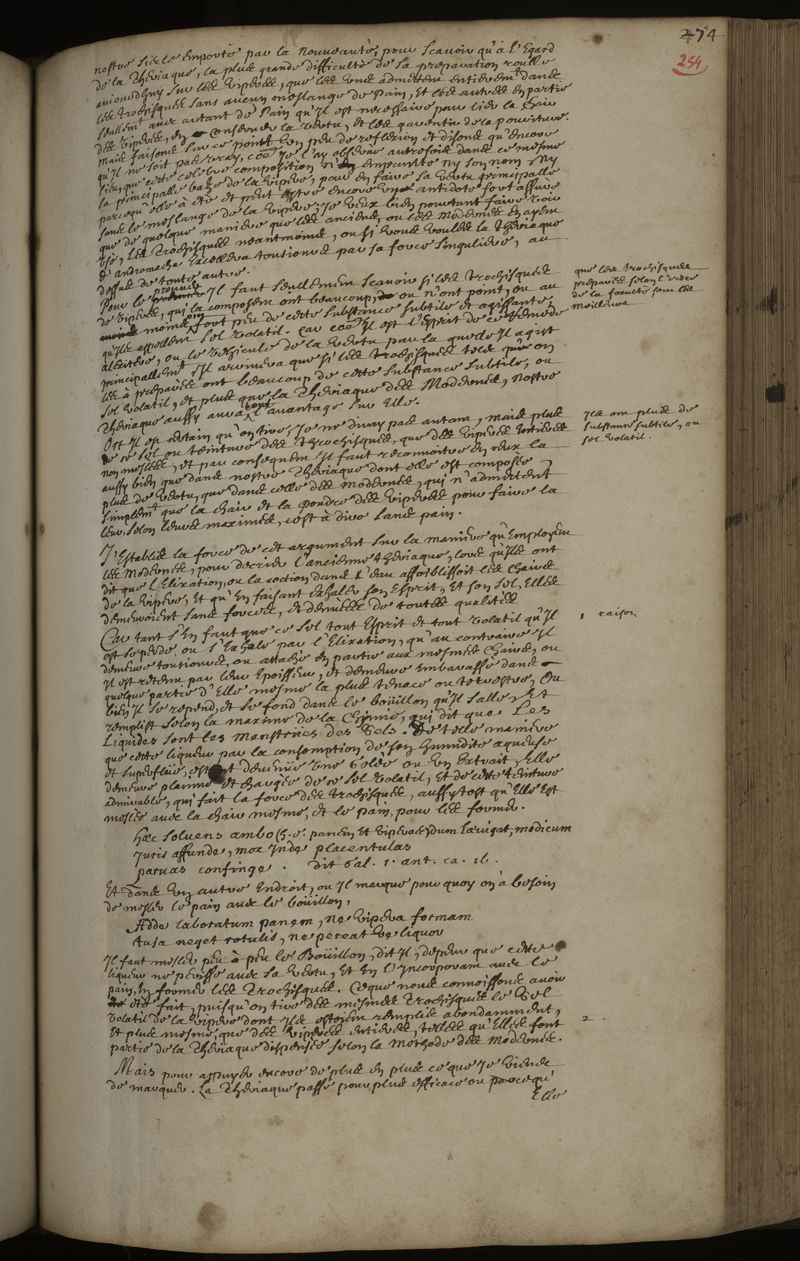 274
254
nostre siecle emporté par la nouveauté, pour scavoir qu'à l'Egard
de la Theriaque, la plus grande difficulté de sa preparation roulle
aujourd'huy sur les viperes, que les uns admettent entieres dans
les Trochisques sans aucun meslange de Pain, Et les autres en partie
seullemt avec autant de Pain qu'il est necessaire pour lier la chair
des viperes, en conserver la vertu, et les garentir de la pourriture.
mais faisons sur ce point un peu de reflexion et disons qu'encore
qu'il ne soit pas vray, coe je l'ay observé autrefois dans ce mesme
lieu, que cette celebre composition n'ayt emprunté ny son nom ny
la principalle baze de la vipere, pour en faire sa vertu principalle
parce qu'elle a été et peut estre encore un antidote fort assuré
sans le meslange de la vipere; Je veux bien pourtant faire voir
que de quelque maniere que les anciens, ou les Modernes en ayent
usé, les Trochisques neantmoins, ou si vous voulez la Theriaque
d'andromache Excellera tousiours par sa force singuliere, au
dessus de toute autre.
Pour le prouver Il faut seullement scavoir si les Trochisques
de viperes, qui la composent ont beaucoup, ou n'ont point, ou au
moins fort peu de cette substance subtile et agissante,
qu'ils appellent sel volatil. Car coe il est l'Esprit de ces remedes
alexiteres, ou le vehicule de la vertu par laquelle Il agist
principallemt, Il arrivera que si les Trochisques tels qu'on
les a preparés ont beaucoup de cette substance subtile, ou
sel volatil, et plus que la Theriaque des Modernes, nostre
Theriaque aussy aura tout l'avantage sur Elle.
que les trochisques
preparés selon l'ordre
de la faculté sont les
meilleurs
Or Il est certain qu'on tire, Je ne diray pas autant, mais plus
de ce sel ou teinture des Trochisques, que des viperes entieres
non meslées, et par consequent il faut reconnoitre en eux la
aussy bien que dans nostre Theriaque dont elle est composée,
plus de vertu, que dans celle des Modernes, qui n'admettent
simplemt que la chair et la poudre des viperes pour faire la
leur, selon leurs maximes, c'est à dire sans pain.
Ils ont plus de
substance subtile, ou
sel volatil.
J'Establis la force de cet argument sur la maniere qu'Employent
les Modernes, pour decrier l'ancienne theriaque, lors qu'ils ont
dit que l'Elixation, ou la coction dans l'eau affoiblissoit les chairs
de la vipere, Et qu'en faisant exhaler son Esprit, Et son sel, Elles
demeuroient sans forces, et denuées de toutes qualités
Car tant s'en faut que ce sel tout Esprit et tout volatil qu'il
est se perde, ou s'Exhale par l'Elixation, qu'au contraire Il
demeure tousiours, ou attaché en partie aux mesmes chairs, ou
Il est retenu par leur Epoisseur, et demeure embarassé dans
quelque partie d'Elle mesme la plus tenace ou terrestre, Ou
bien il se repend, et se fond dans le boüillon qu'il salle, Et
remplist selon la maxime de la Chymie, qui dit que. Les
Liquides sont les Menstrües des Sels. De telle maniere
que cette liqueur par la consomption de son humidité aqueuse
et superflüe, estant devenüe une Gelée ou un Extrait, Elle
demeure plaine et chargée de ce sel volatil, Et de cette teinture
admirable, qui fait la force des Trochisques, aussytost qu'Elle Est
meslée avec la chair mesme, et le pain, pour les former.
1 raison
Hæc soluens ambo (s. e. panem Et viperas) dum lævigat, modicum
Juris affunde, mox Inde placentulas
paruas confinge. Dit Gal. 1. ant. ca. 16.
Et dans un autre Endroit, ou Il marque pour quoy on a besoin
de mesler le pain avec le boüillon,
Adde laboratum panem, ne vipera formam
tusa neget rotulis, ne pereat ve liquor
Il faut mesler peu à peu le Boüillon, dit Il, de peur que cette
liqueur ne perisse avec sa vertu, Et en l'Incorporant avec le
pain, En former les Trochisques. Ce que nous connoissons avoir
été fait, puisqu'on tire des mesmes Trochisques le Sel
volatil de la vipere dont Ils estoient remplis abondamment,
Et plus mesme, que des viperes entieres, telles qu'Elles sont
partie de la Theriaque dispensée selon la Methode des Modernes.
2.
Mais pour appuyer encore de plus en plus ce que Je viens
de marquer. La Theriaque passe pour plus efficace ou parce qu'
Elle